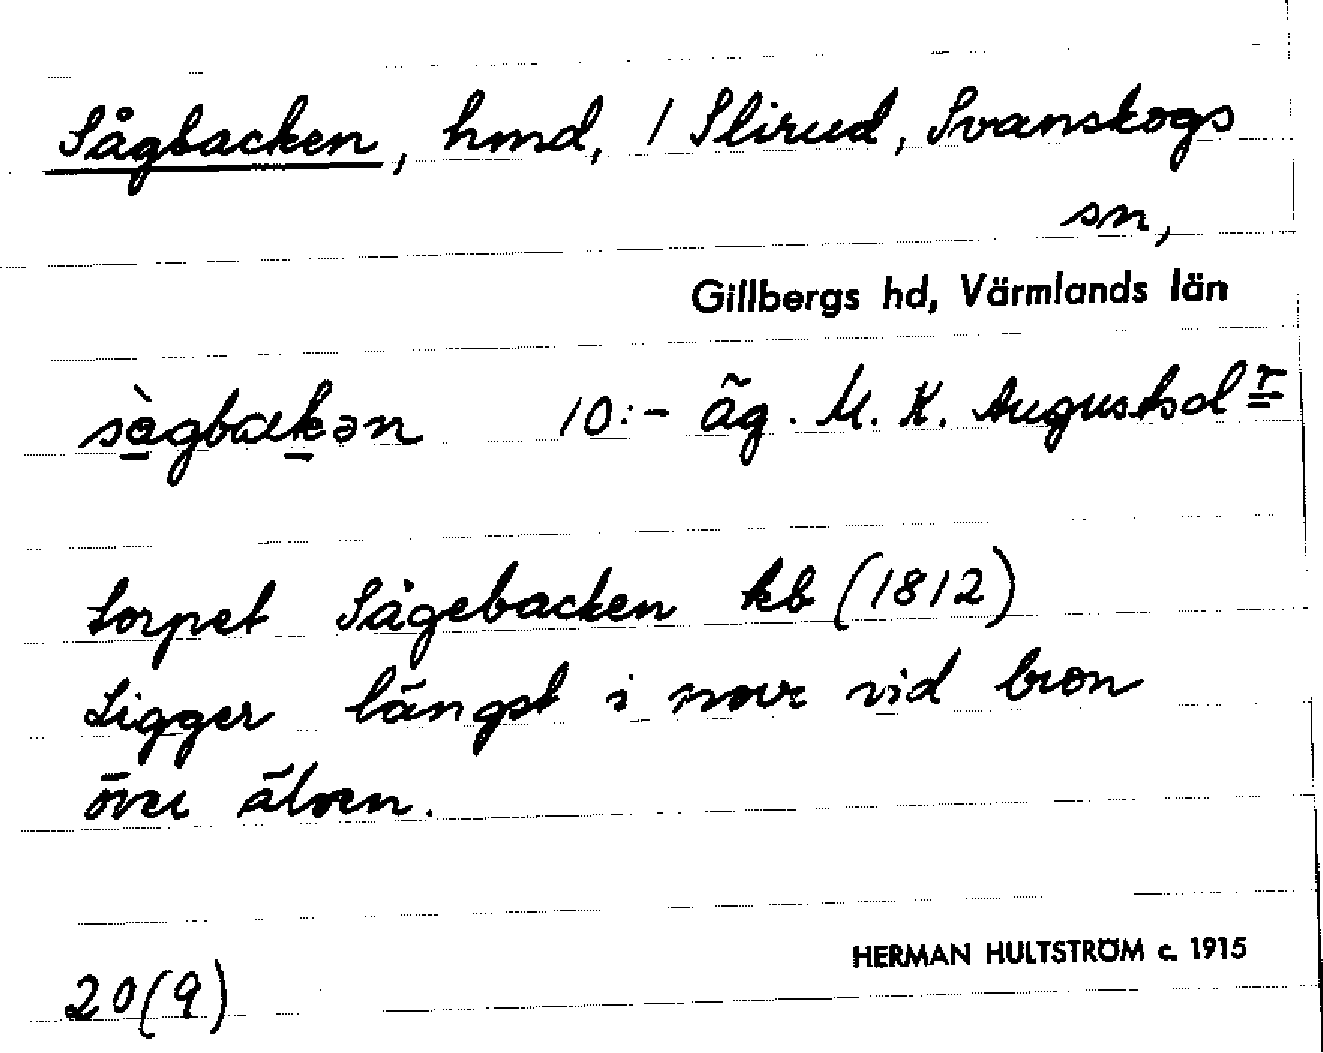 Sågbacken, hmd, / Slirud, Svanskogs
sn,
Gillbergs hd, Värmlands län
sàgbakən 10:- äg. M. K. Augustsdr
torpet Sågebacken kb (1812)
Ligger längst i norr vid bron
över älven.
HERMAN HULTSTRÖM c. 1915
20(9)